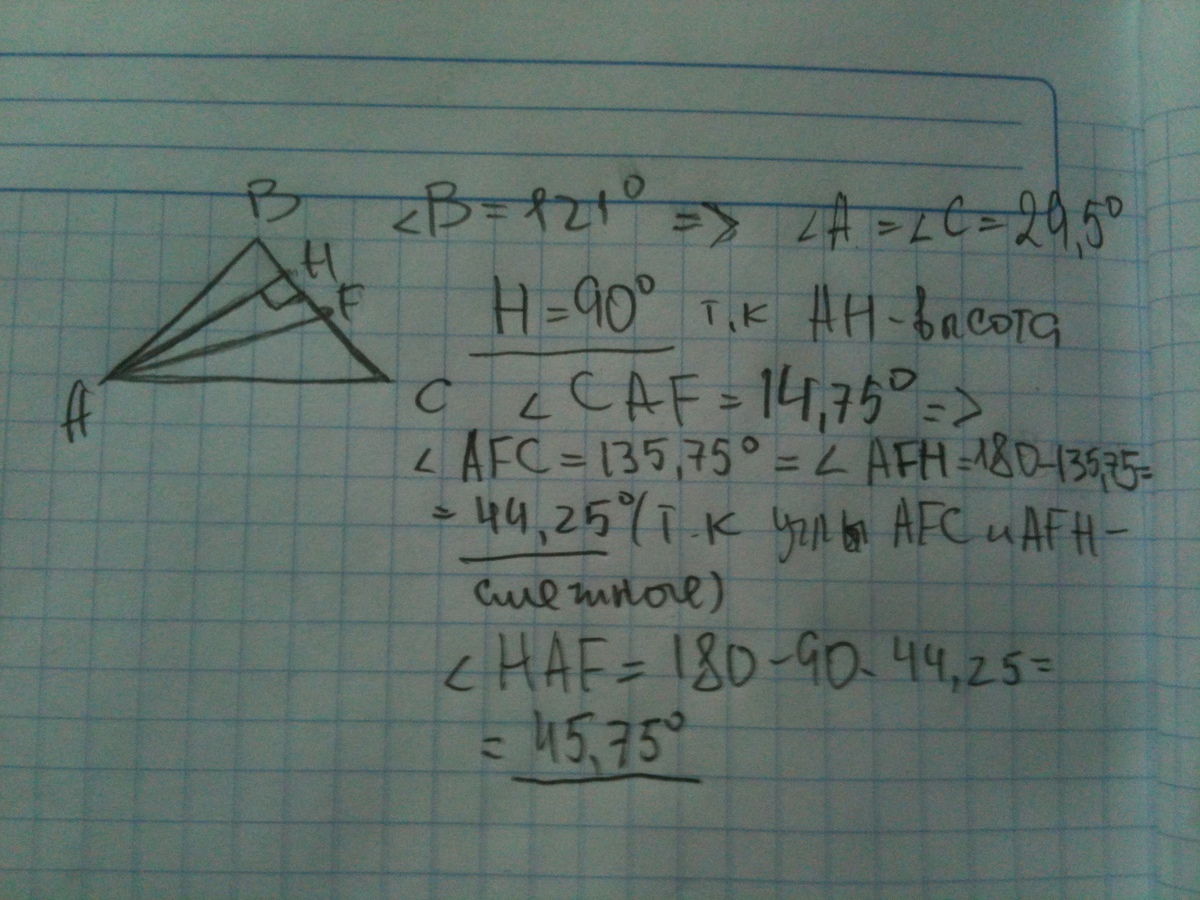 B
H
F
A
C
∠B = 121° => ∠A = ∠C = 29,5°
H = 90° т.к AH - высота
∠CAF = 14,75° =>
∠AFC = 135,75° = ∠AFH = 180 - 135,75 =
= 44,25° (т.к углы AFC и AFH -
смежные)
∠HAF = 180 - 90 - 44,25 =
= 45,75°